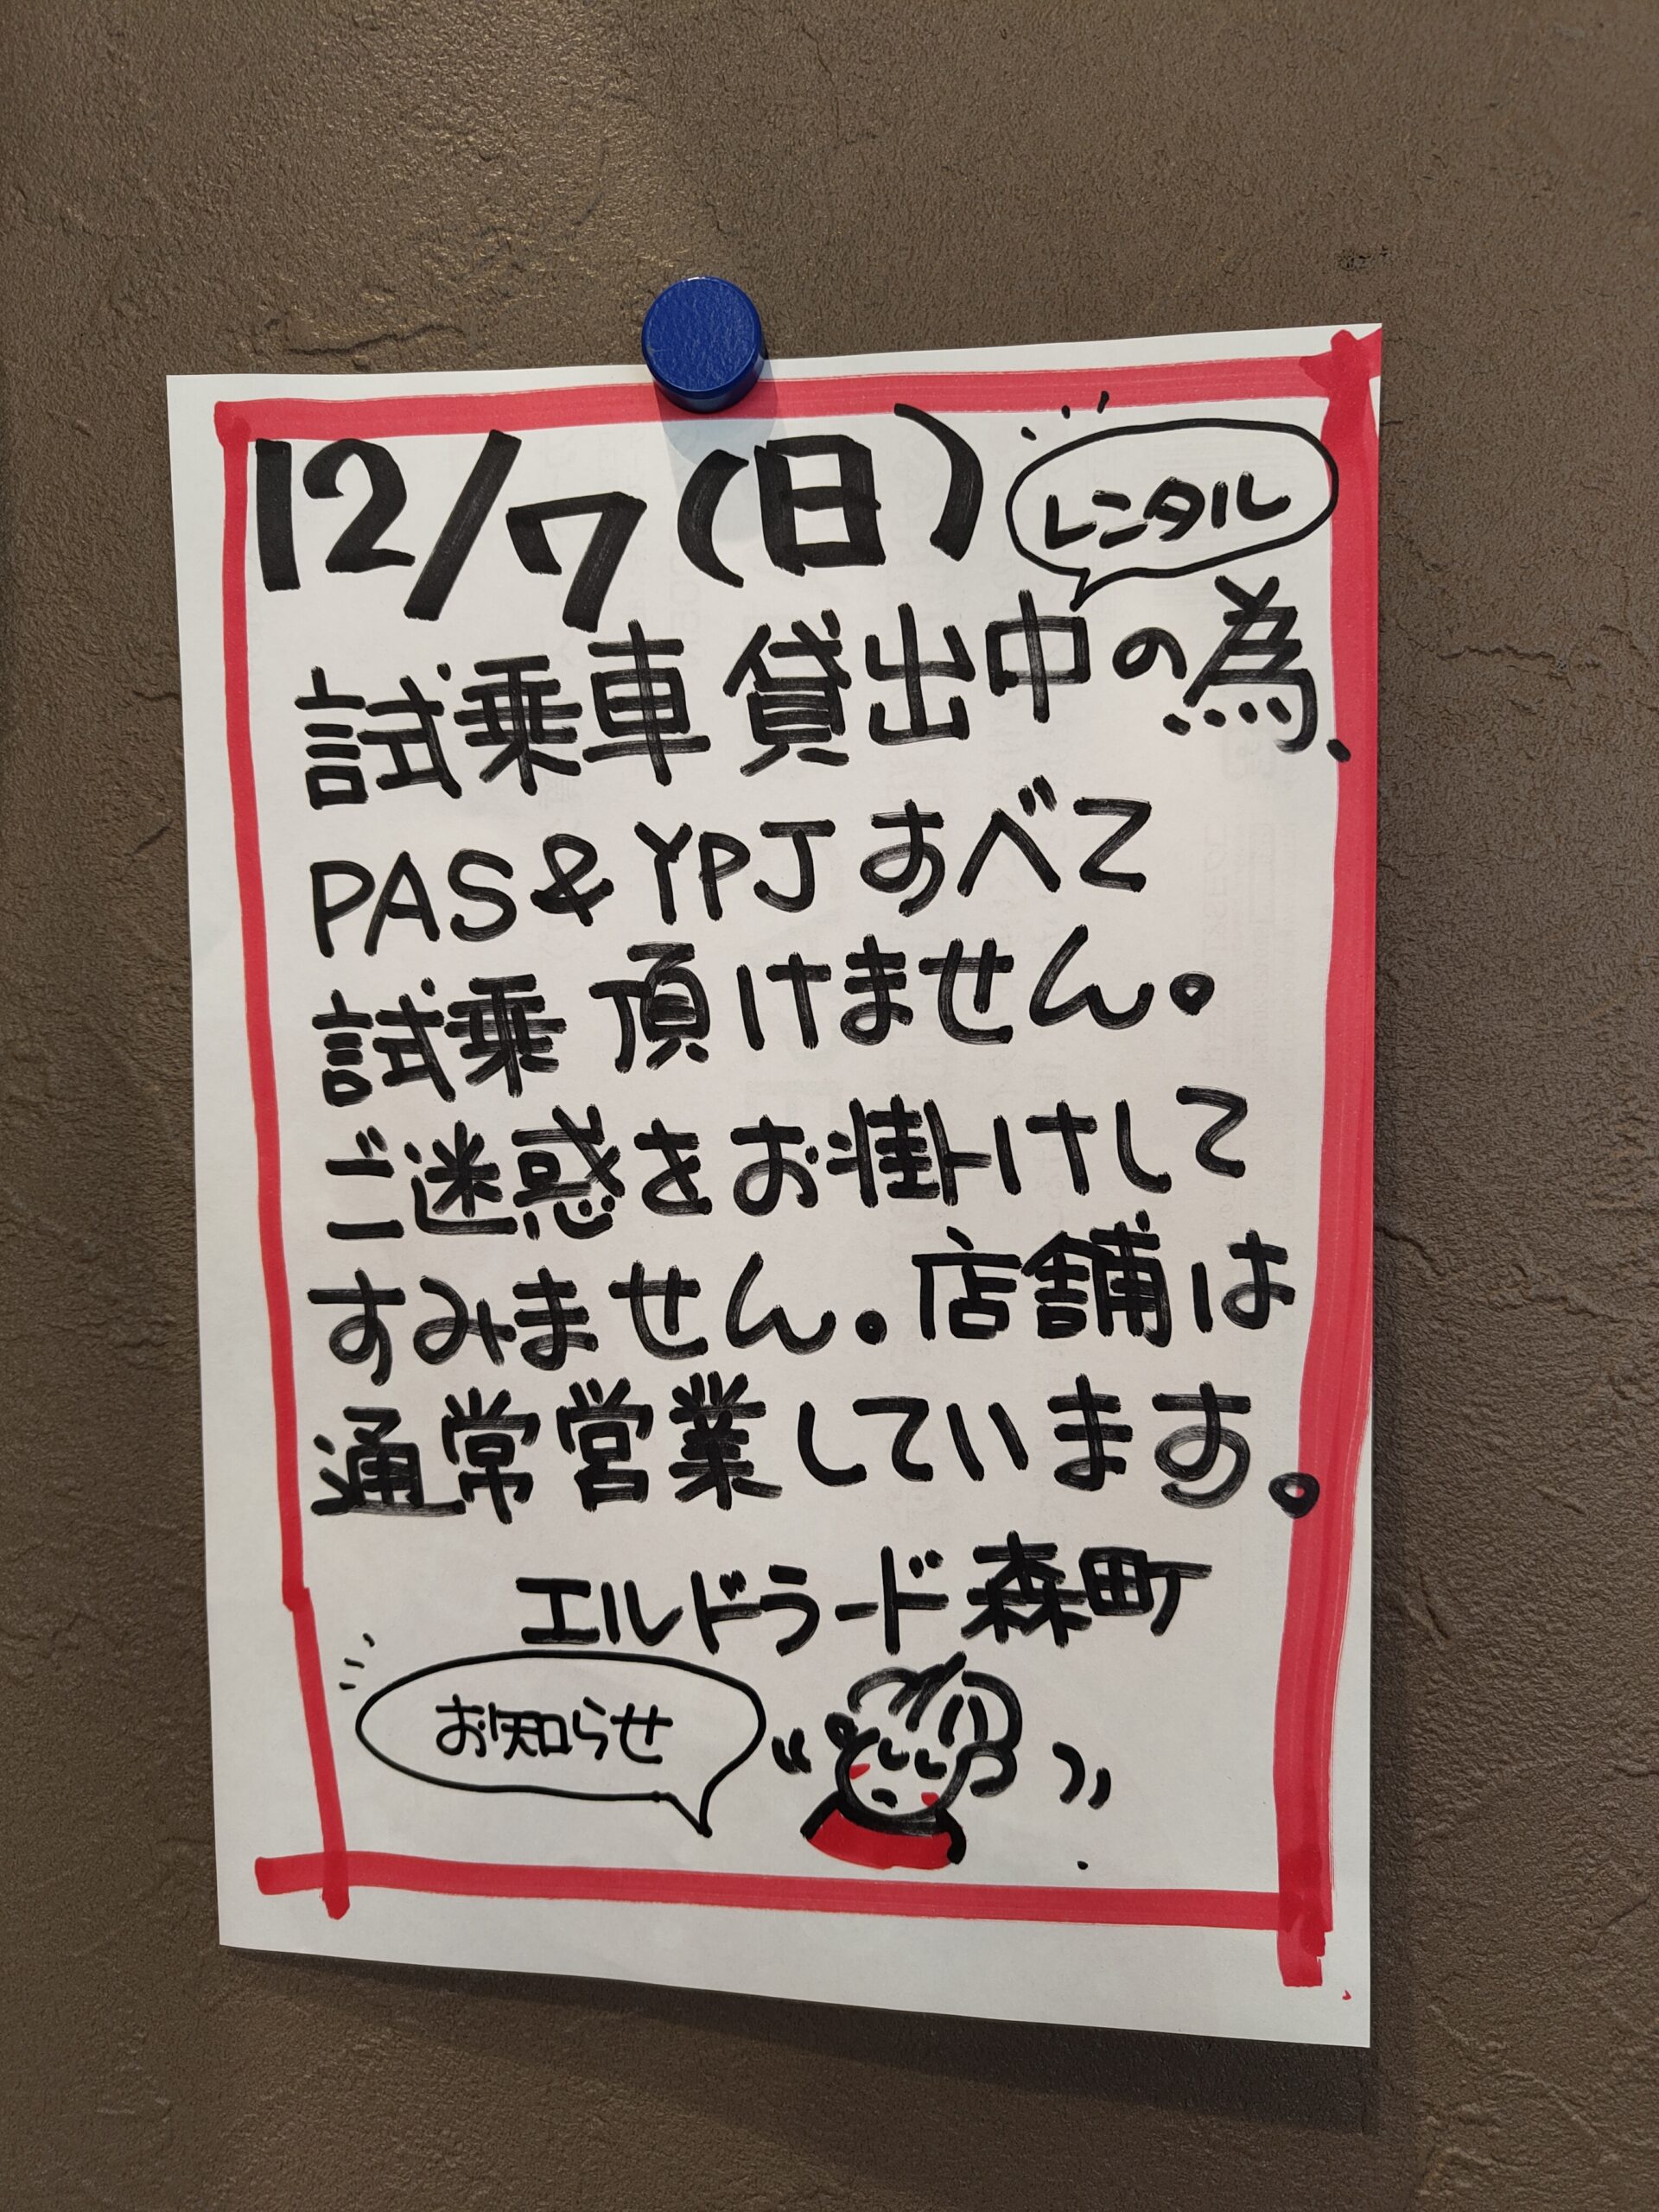 12/7(日)
レンタル
試乗車 貸出中の為、
PAS & YPJ すべて
試乗 頂けません。
ご迷惑をお掛けして
すみません。店舗は
通常営業しています。
エルドラード 森町
お知らせ